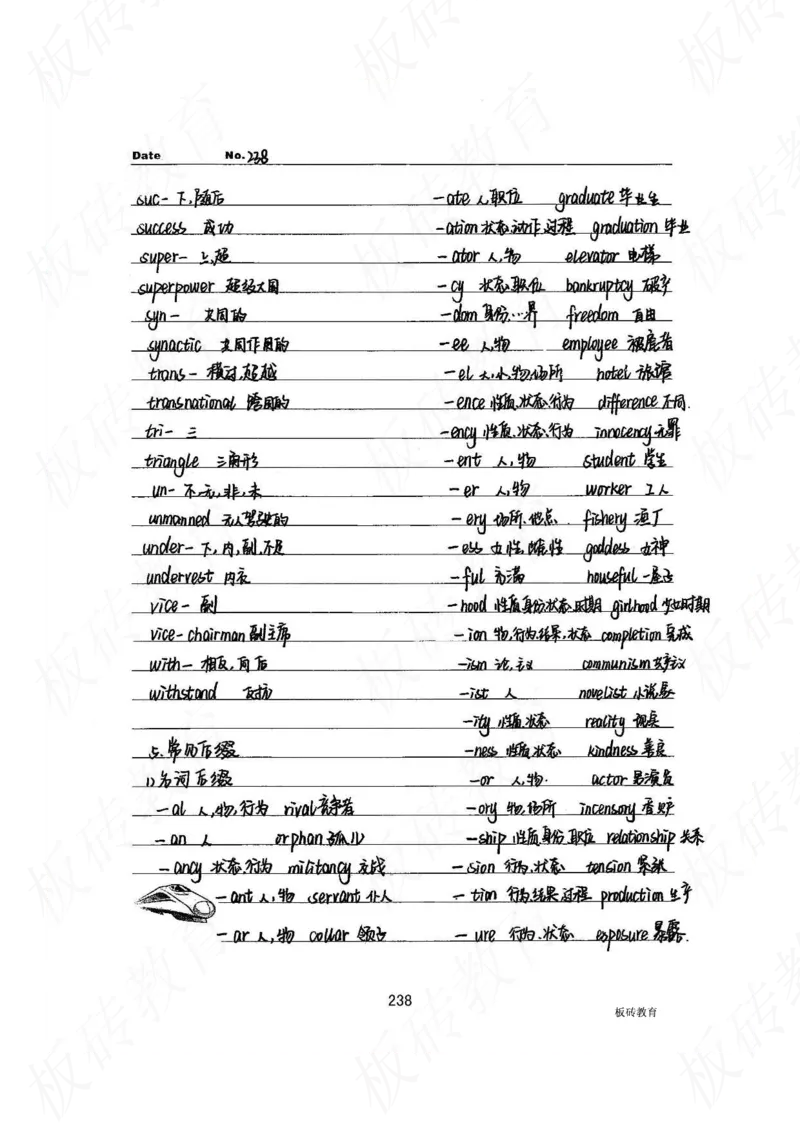 Date No. 238
suc- 下,随后
success 成功
super- 上,超
superpower 超级大国
syn- 共同的
synactic 共同作用的
trans- 横过,超越
transnational 跨国的
tri- 三
triangle 三角形
un- 不,无,非,未
unmanned 无人驾驶的
under- 下,内,副,不足
undervest 内衣
vice- 副
vice-chairman 副主席
with- 相反,向后
withstand 反抗
5.常见后缀
1)名词后缀
-al 人,物,行为 rival 竞争者
-an 人 orphan 孤儿
-ancy 状态,行为 militancy 交战
-ant 人,物 servant 仆人
-ar 人,物 collar 领子
-ate 人,职位 graduate 毕业生
-ation 状态,动作,过程 graduation 毕业
-ator 人,物 elevator 电梯
-cy 状态,职位 bankruptcy 破产
-dom 身份,…界 freedom 自由
-ee 人,物 employee 被雇者
-el 人,小,物,场所 hotel 旅馆
-ence 性质,状态,行为 difference 不同.
-ency 性质,状态,行为 innocency 无罪
-ent 人,物 student 学生
-er 人,物 worker 工人
-ery 场所,地点. fishery 渔丁
-ess 女性,雌性 goddess 女神
-ful 充满 houseful 一屋子
-hood 性质,身份,状态,时期 girlhood 少女时期
-ion 物,行为,结果,状态 completion 完成
-ism 论,主义 communism 共产主义
-ist 人 novelist 小说家
-ity 性质,状态 reality 现实
-ness 性质,状态 kindness 善良
-or 人,物. actor 男演员
-ory 物,场所 incensory 香炉
-ship 性质,身份,职位 relationship 关系
-sion 行为,状态 tension 紧张
-tion 行为,结果,过程 production 生产
-ure 行为,状态 exposure 暴露.
238
板砖教育